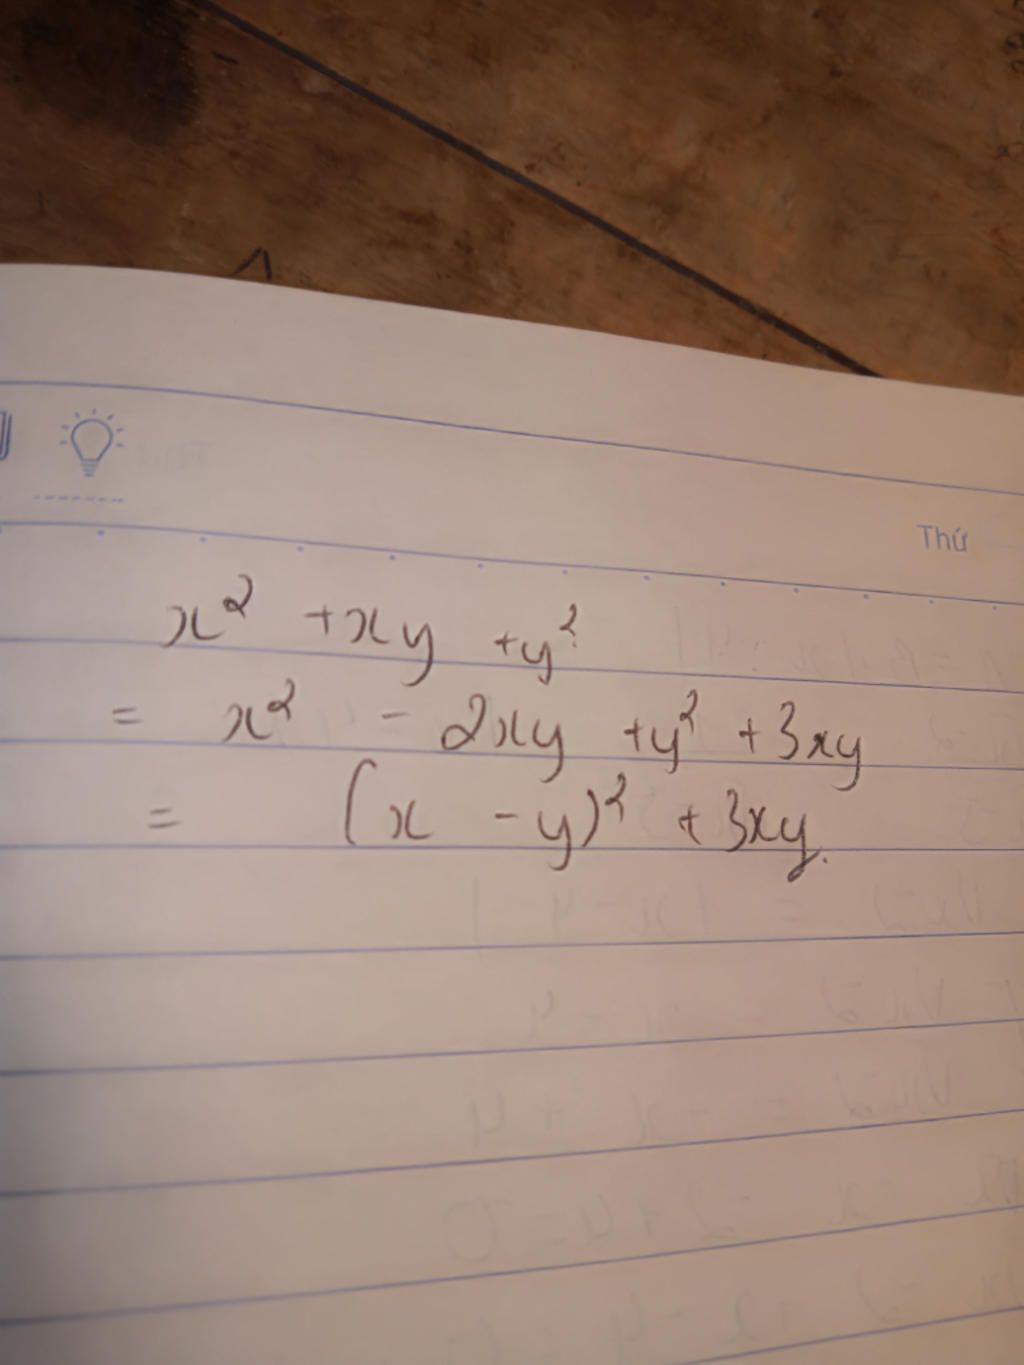 Thứ
x² + xy + y²
= x² - 2xy + y² + 3xy
= (x - y)² + 3xy.